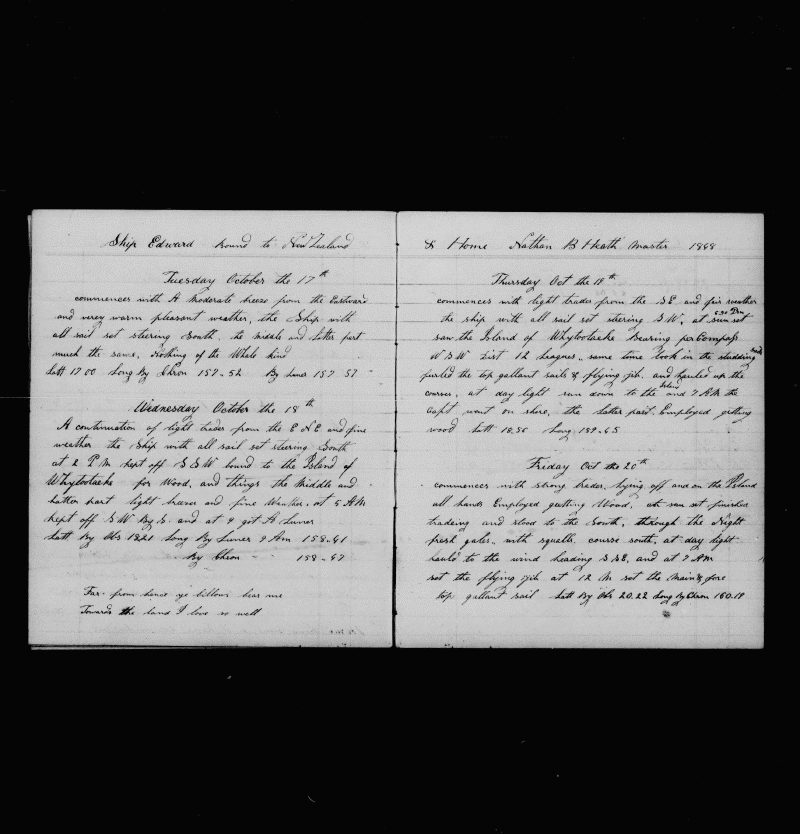 Ship Edward Bound to New Zealand
Tuesday October the 17th
commences with A Moderate breeze from the Eastward
and verey warm pleasant weather, the Ship with
all sail set steering South, the Middle and Latter part
much the same, Nothing of the Whale kind
Latt 17 00 Long By Chron 157-52 By Luner 157 57
Wednesday October the 18th
A continuation of light trades from the E N E and fine
weather the Ship with all sail set steering South
at 2 P M kept off S S W bound to the Island of
Whytootacke for Wood, and things the Middle and
Latter part light breeze and fine Weather, at 5 A M
kept off S W By S. and at 9 got A Luner
Latt By Obs 18 21 Long By Luner 9 Am 158-41
By Chron 158-47
Far from hence ye billows bear me
Towards the land I love so well
& Home Nathan B Heath Master 1848
Thursday Oct the 19th
commences with light trades from the S E. and fair weather
the ship with all sail set steering S W, at 5.30 Pm sun set
saw the Island of Whytootacke Bearing per Compass
W S W Dist 12 Leagues, same time took in the studding sails
furled the top gallant sails & flying jib. and hauled up the
courses, at day light ran down to the Island and 7 A M the
Capt went on shore, the Latter part Employed getting
wood Latt 18.56 Long 159-45
Friday Oct the 20th
commences with strong trades, lying off and on the Island
all hands Employed getting Wood, at sun set finished
tradeing and stood to the South, through the Night
fresh gales, with squalls, course south, at day light
hauld to the wind heading S S E, and at 7 A M
set the flying jib at 12 M set the Main & fore
top gallant sail Latt By Obs 20.22 Long By Chron 160.18